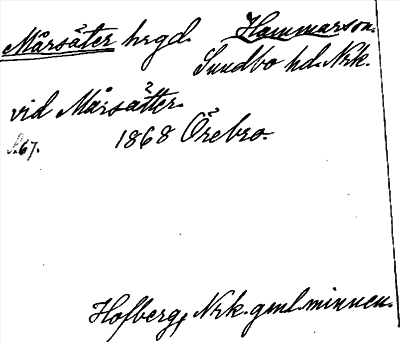 Mårsäter hrgd. Hammarson.
Sundbo hd. Nrk.
vid Mårsätter.
1868 Örebro.
67.
Hofberg, Nrk. gml. minnen.